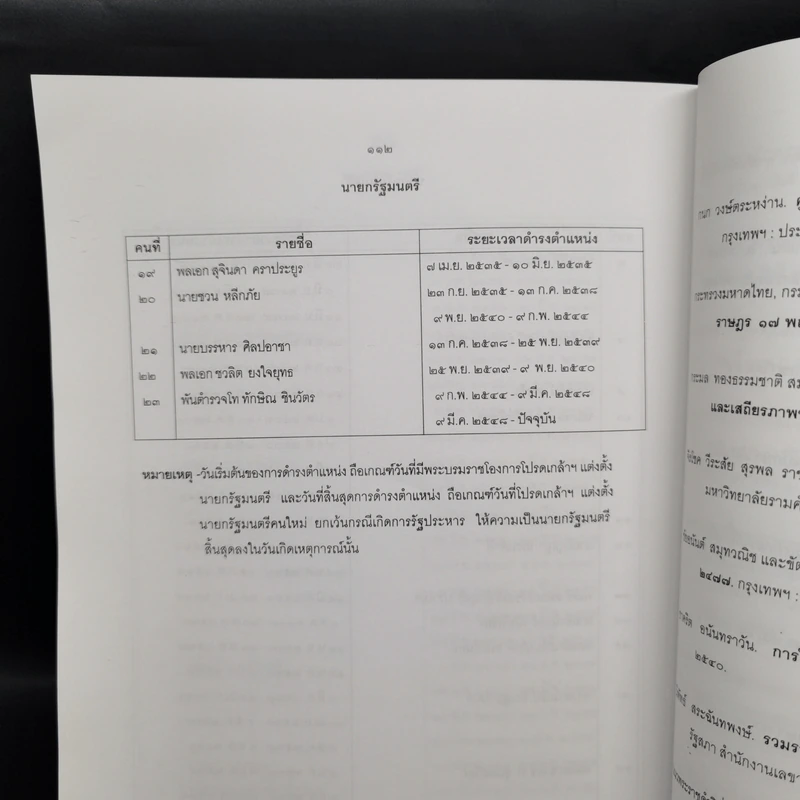 ๑๑๒
นายกรัฐมนตรี
คนที่ รายชื่อ ระยะเวลาดำรงตำแหน่ง
๑๙ พลเอก สุจินดา คราประยูร ๗ เม.ย. ๒๕๓๕ - ๑๐ มิ.ย. ๒๕๓๕
๒๐ นายชวน หลีกภัย ๒๓ ก.ย. ๒๕๓๕ - ๑๓ ก.ค. ๒๕๓๘
๙ พ.ย. ๒๕๔๐ - ๙ ก.พ. ๒๕๔๔
๒๑ นายบรรหาร ศิลปอาชา ๑๓ ก.ค. ๒๕๓๘ - ๒๕ พ.ย. ๒๕๓๙
๒๒ พลเอก ชวลิต ยงใจยุทธ ๒๕ พ.ย. ๒๕๓๙ - ๙ พ.ย. ๒๕๔๐
๒๓ พันตำรวจโท ทักษิณ ชินวัตร ๙ ก.พ. ๒๕๔๔ - ๙ มี.ค. ๒๕๔๘
๙ มี.ค. ๒๕๔๘ - ปัจจุบัน
หมายเหตุ -วันเริ่มต้นของการดำรงตำแหน่ง ถือเกณฑ์วันที่มีพระบรมราชโองการโปรดเกล้าฯ แต่งตั้ง
นายกรัฐมนตรี และวันที่สิ้นสุดการดำรงตำแหน่ง ถือเกณฑ์วันที่โปรดเกล้าฯ แต่งตั้ง
นายกรัฐมนตรีคนใหม่ ยกเว้นกรณีเกิดการรัฐประหาร ให้ความเป็นนายกรัฐมนตรี
สิ้นสุดลงในวันเกิดเหตุการณ์นั้น
วงษ์ตระหง่าน.
กรุงเทพฯ : ประ
กระทรวงมหาดไทย, กรม
ราษฎร ๑๗ พ
ทองธรรมชาติ ส
และเสถียรภาพ
วีระสัย สุรพล ราช
มหาวิทยาลัยรามค
สมุทวณิช และขัต
๒๔๗๗. กรุงเทพฯ :
อนันทราวัน. การ
๒๕๔๐.
สระฉันทพงษ์. รวมร
รัฐสภา สำนักงานเลขา